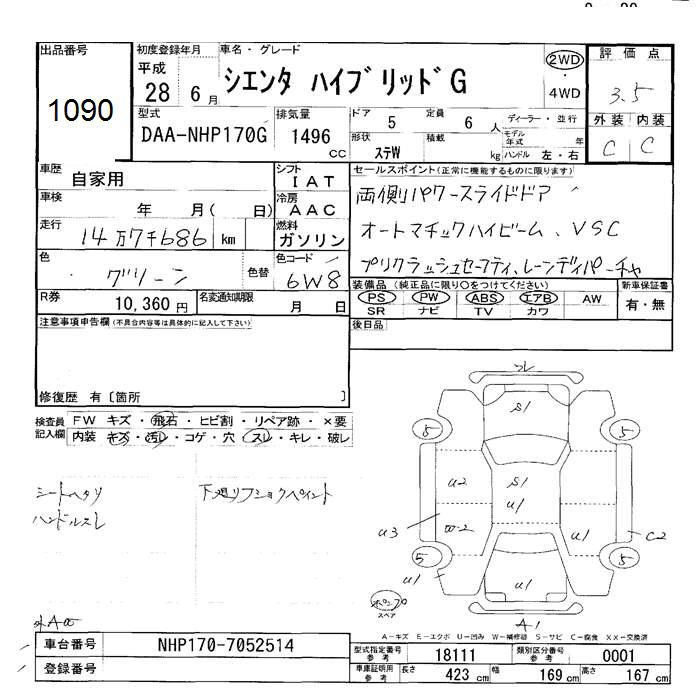 出品番号
1090
初度登録年月
平成
28 6 月
車名・グレード
シエンタ ハイブリッドG
2WD
・
4WD
評価点
3.5
外装 内装
C C
型式
DAA-NHP170G
排気量
1496
CC
ドア
5
定員
6 人
形状
ステW
積載
kg
ディーラー・並行
モデル年式 年
ハンドル 左・右
車歴
自家用
シフト
IAT
車検
年 月( 日)
冷房
AAC
走行
14万7千686 km
燃料
ガソリン
色
グリーン
色替
色コード
6W8
R券
10,360円
名変通知期限
月 日
セールスポイント(正常に機能するものに限ります)
両側パワースライドドア
オートマチックハイビーム、VSC
プリクラッシュセーフティ、レーンディパーチャ
装備品 (純正品に限り○をつけてください)
PS PW ABS エアB AW
SR ナビ TV カワ
新車保証書
有・無
後日品
注意事項申告欄(不具合内容等は具体的に記入して下さい)
修復歴 有〔箇所 〕
検査員
記入欄
FW キズ・飛石・ヒビ割・リペア跡・×要
内装 キズ・汚レ・コゲ・穴・スレ・キレ・破レ
シートヘタリ
ハンドルスレ
下廻リフショクペイント
S1
5 5
U2 S1
U1
U3 W-2 U1 C2
5 5
U1
U1
スペア
A1
A-キズ E-エクボ U-凹み W-補修跡 S-サビ C-腐食 XX-交換済
車台番号
NHP170-7052514
登録番号
型式指定番号
参考
18111
類別区分番号
参考
0001
車庫証明用
参考
長さ 423 cm 幅 169 cm 高さ 167 cm